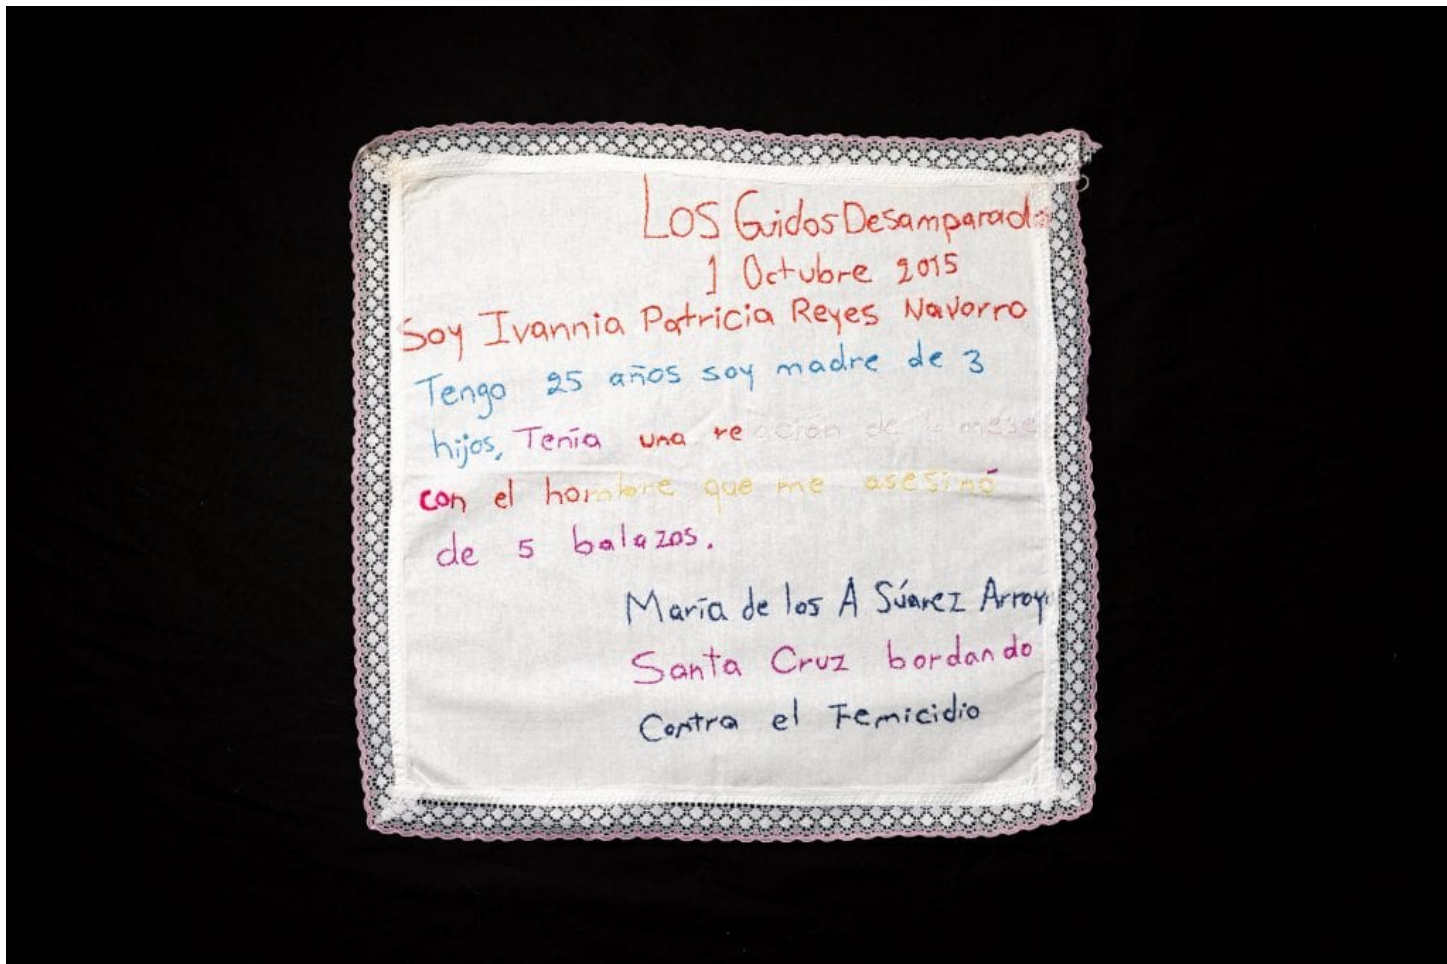 Los Guidos Desamparad
1 Octubre 2015
Soy Ivannia Patricia Reyes Navorro
Tengo 25 años soy madre de 3
hijos, Tenía una relación de mese
con el hombre que me asesinó
de 5 balazos.
María de los A Súarez Arroy
Santa Cruz bordando
Contra el Femicidio